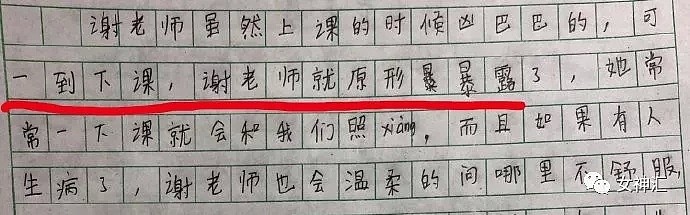 谢老师虽然上课的时候凶巴巴的，可
一到下课，谢老师就原形暴暴露了，她常
常一下课就会和我们照xiàng，而且如果有人
生病了，谢老师也会温柔的问哪里不舒服，
女神汇